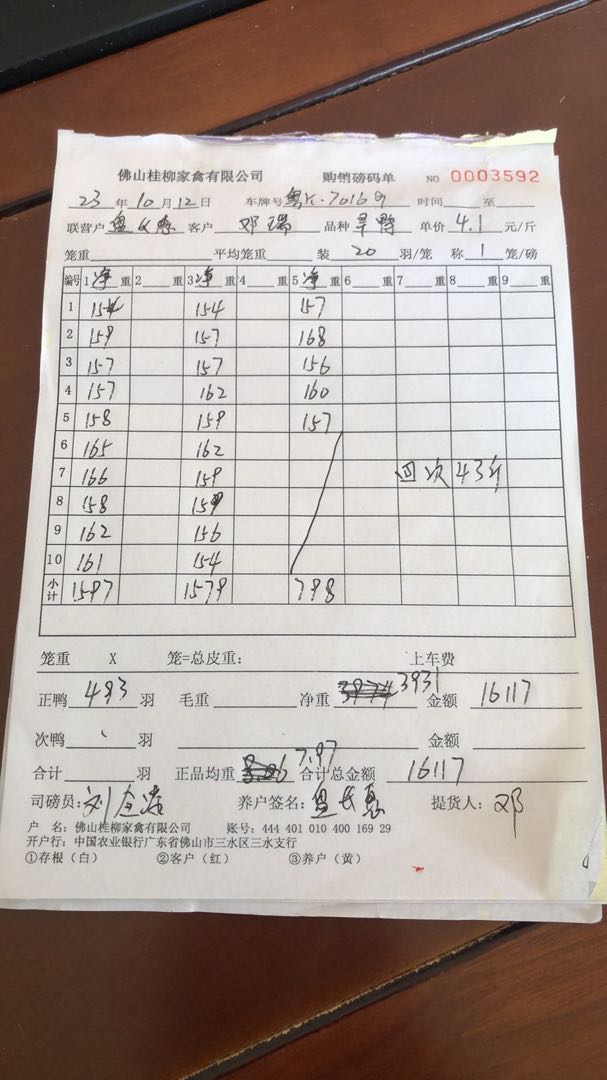 佛山桂柳家禽有限公司 购销磅码单 NO 0003592
23年10月12日 车牌号粤K·7016 时间 至
联营户 客户 邓瑞 品种 旱鸭 单价 4.1 元/斤
笼重 平均笼重 装 20 羽/笼 称 1 笼/磅
编号 1净重 2重 3净重 4重 5净重 6重 7重 8重 9重
1 154 154 157
2 159 157 168
3 157 157 156
4 157 162 160
5 158 159 157
6 165 162
7 166 159 回次43斤
8 158 159
9 162 156
10 161 154
小计 1597 1579 798
笼重 X 笼=总皮重: 上车费
正鸭 493 羽 毛重 净重 3931 金额 16117
次鸭 羽 金额
合计 羽 正品均重 7.97 合计总金额 16117
司磅员: 养户签名: 提货人: 邓
户 名: 佛山桂柳家禽有限公司 账号: 444 401 010 400 169 29
开户行: 中国农业银行广东省佛山市三水区三水支行
①存根(白) ②客户(红) ③养户(黄)